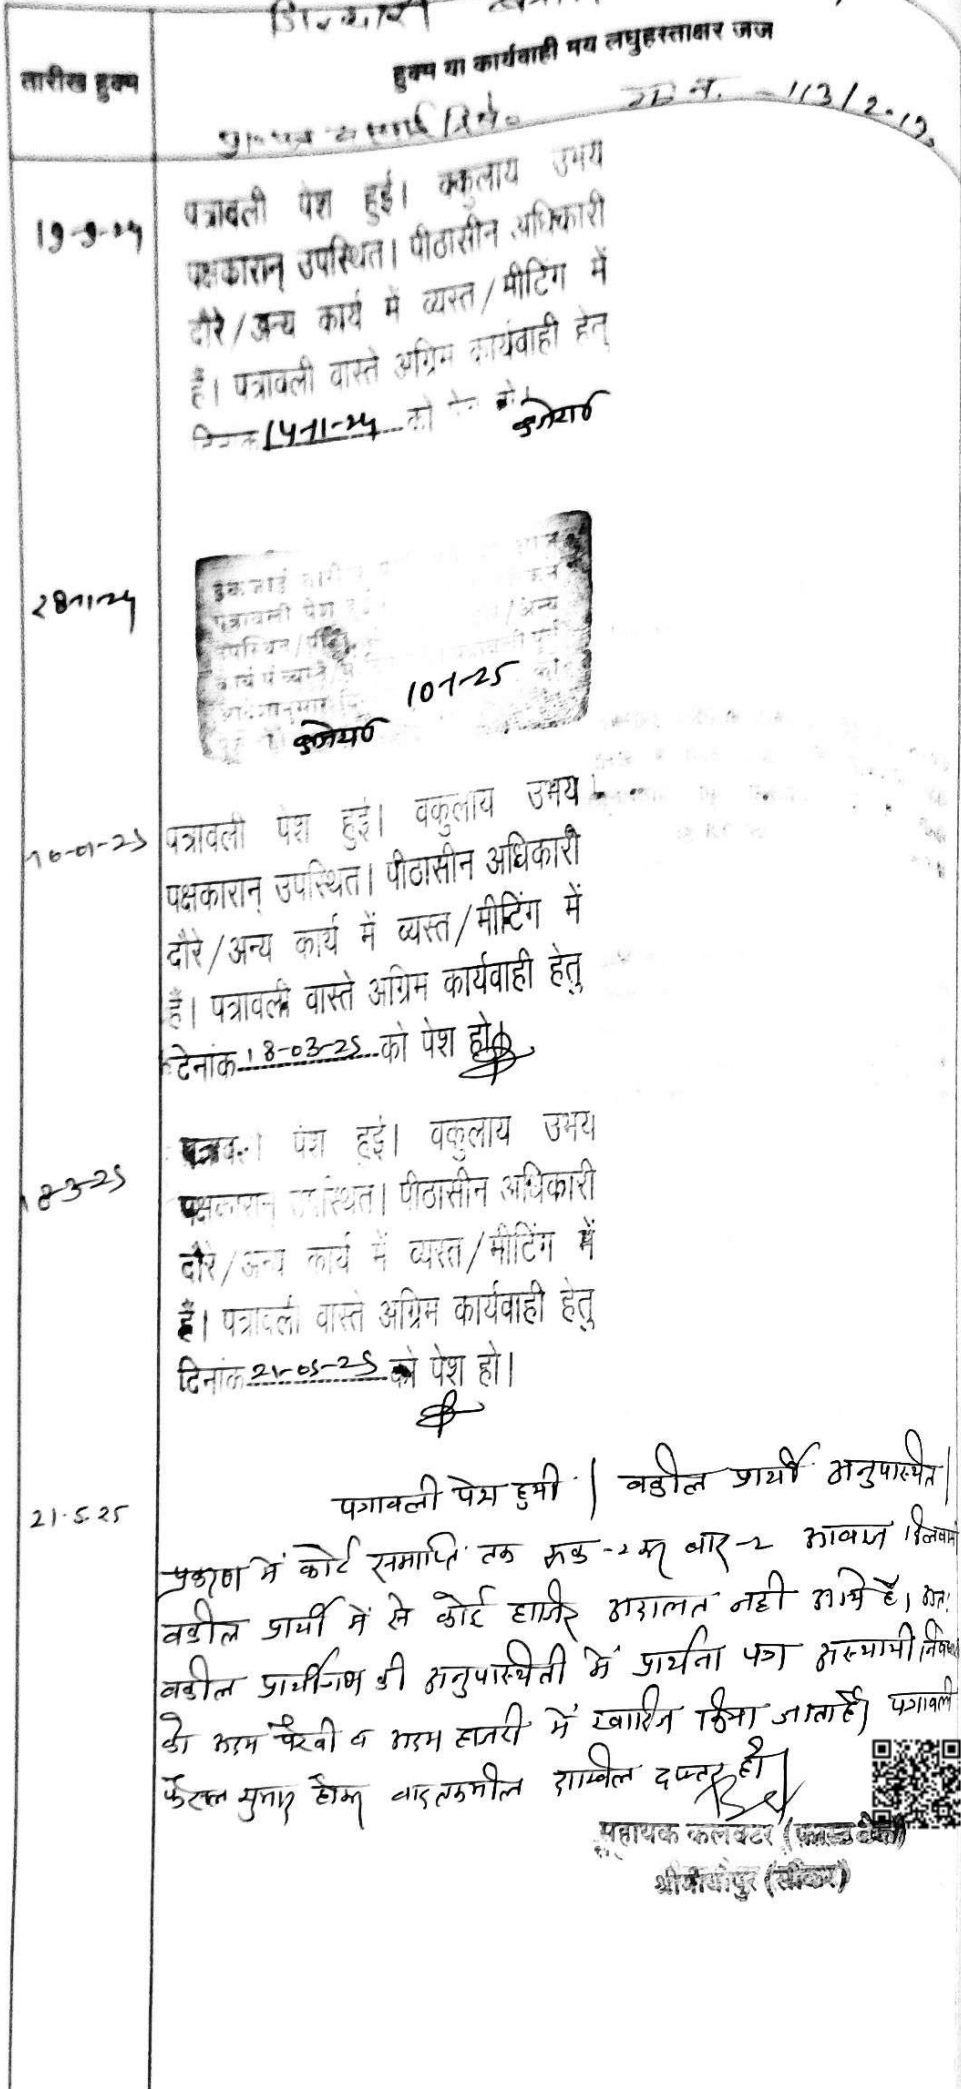 तारीख हुक्म
हुक्म या कार्यवाही मय लघुहस्ताक्षर जज
113/2019
19-9-24
पत्रावली पेश हुई। वकुलाय उभय
पक्षकारान् उपस्थित। पीठासीन अधिकारी
दौरे/अन्य कार्य में व्यस्त/मीटिंग में
हैं। पत्रावली वास्ते अग्रिम कार्यवाही हेतु
को पेश हो।
28-11-24
पत्रावली पेश
/अन्य
10-1-25
10-01-25
पत्रावली पेश हुई। वकुलाय उभय
पक्षकारान् उपस्थित। पीठासीन अधिकारी
दौरे/अन्य कार्य में व्यस्त/मीटिंग में
हैं। पत्रावली वास्ते अग्रिम कार्यवाही हेतु
दिनांक 18-03-25 को पेश हो।
18-3-25
पत्राव पेश हुई। वकुलाय उभय
पक्षकारान् उपस्थित। पीठासीन अधिकारी
दौरे/अन्य कार्य में व्यस्त/मीटिंग में
हैं। पत्रावली वास्ते अग्रिम कार्यवाही हेतु
दिनांक 21-05-25 को पेश हो।
21.5.25
पत्रावली पेश हुयी। वकील प्रार्थी अनुपस्थित।
प्रकरण में कोर्ट समाप्ति तक रूक-2 कर बार-2 आवाज दिलवाने
वकील प्रार्थी में से कोई हाजिर अदालत नही आये है। अतः
वकील प्रार्थीगण की अनुपस्थिती में प्रार्थना पत्र अस्थायी
को अदम पैरवी व अदम हाजरी में खारिज किया जाता है। पत्रावली
फैसल शुमार होकर बाद तकमील दाखिल दफ्तर हो।
सहायक कलक्टर (फास्ट ट्रैक)
श्रीमाधोपुर (सीकर)